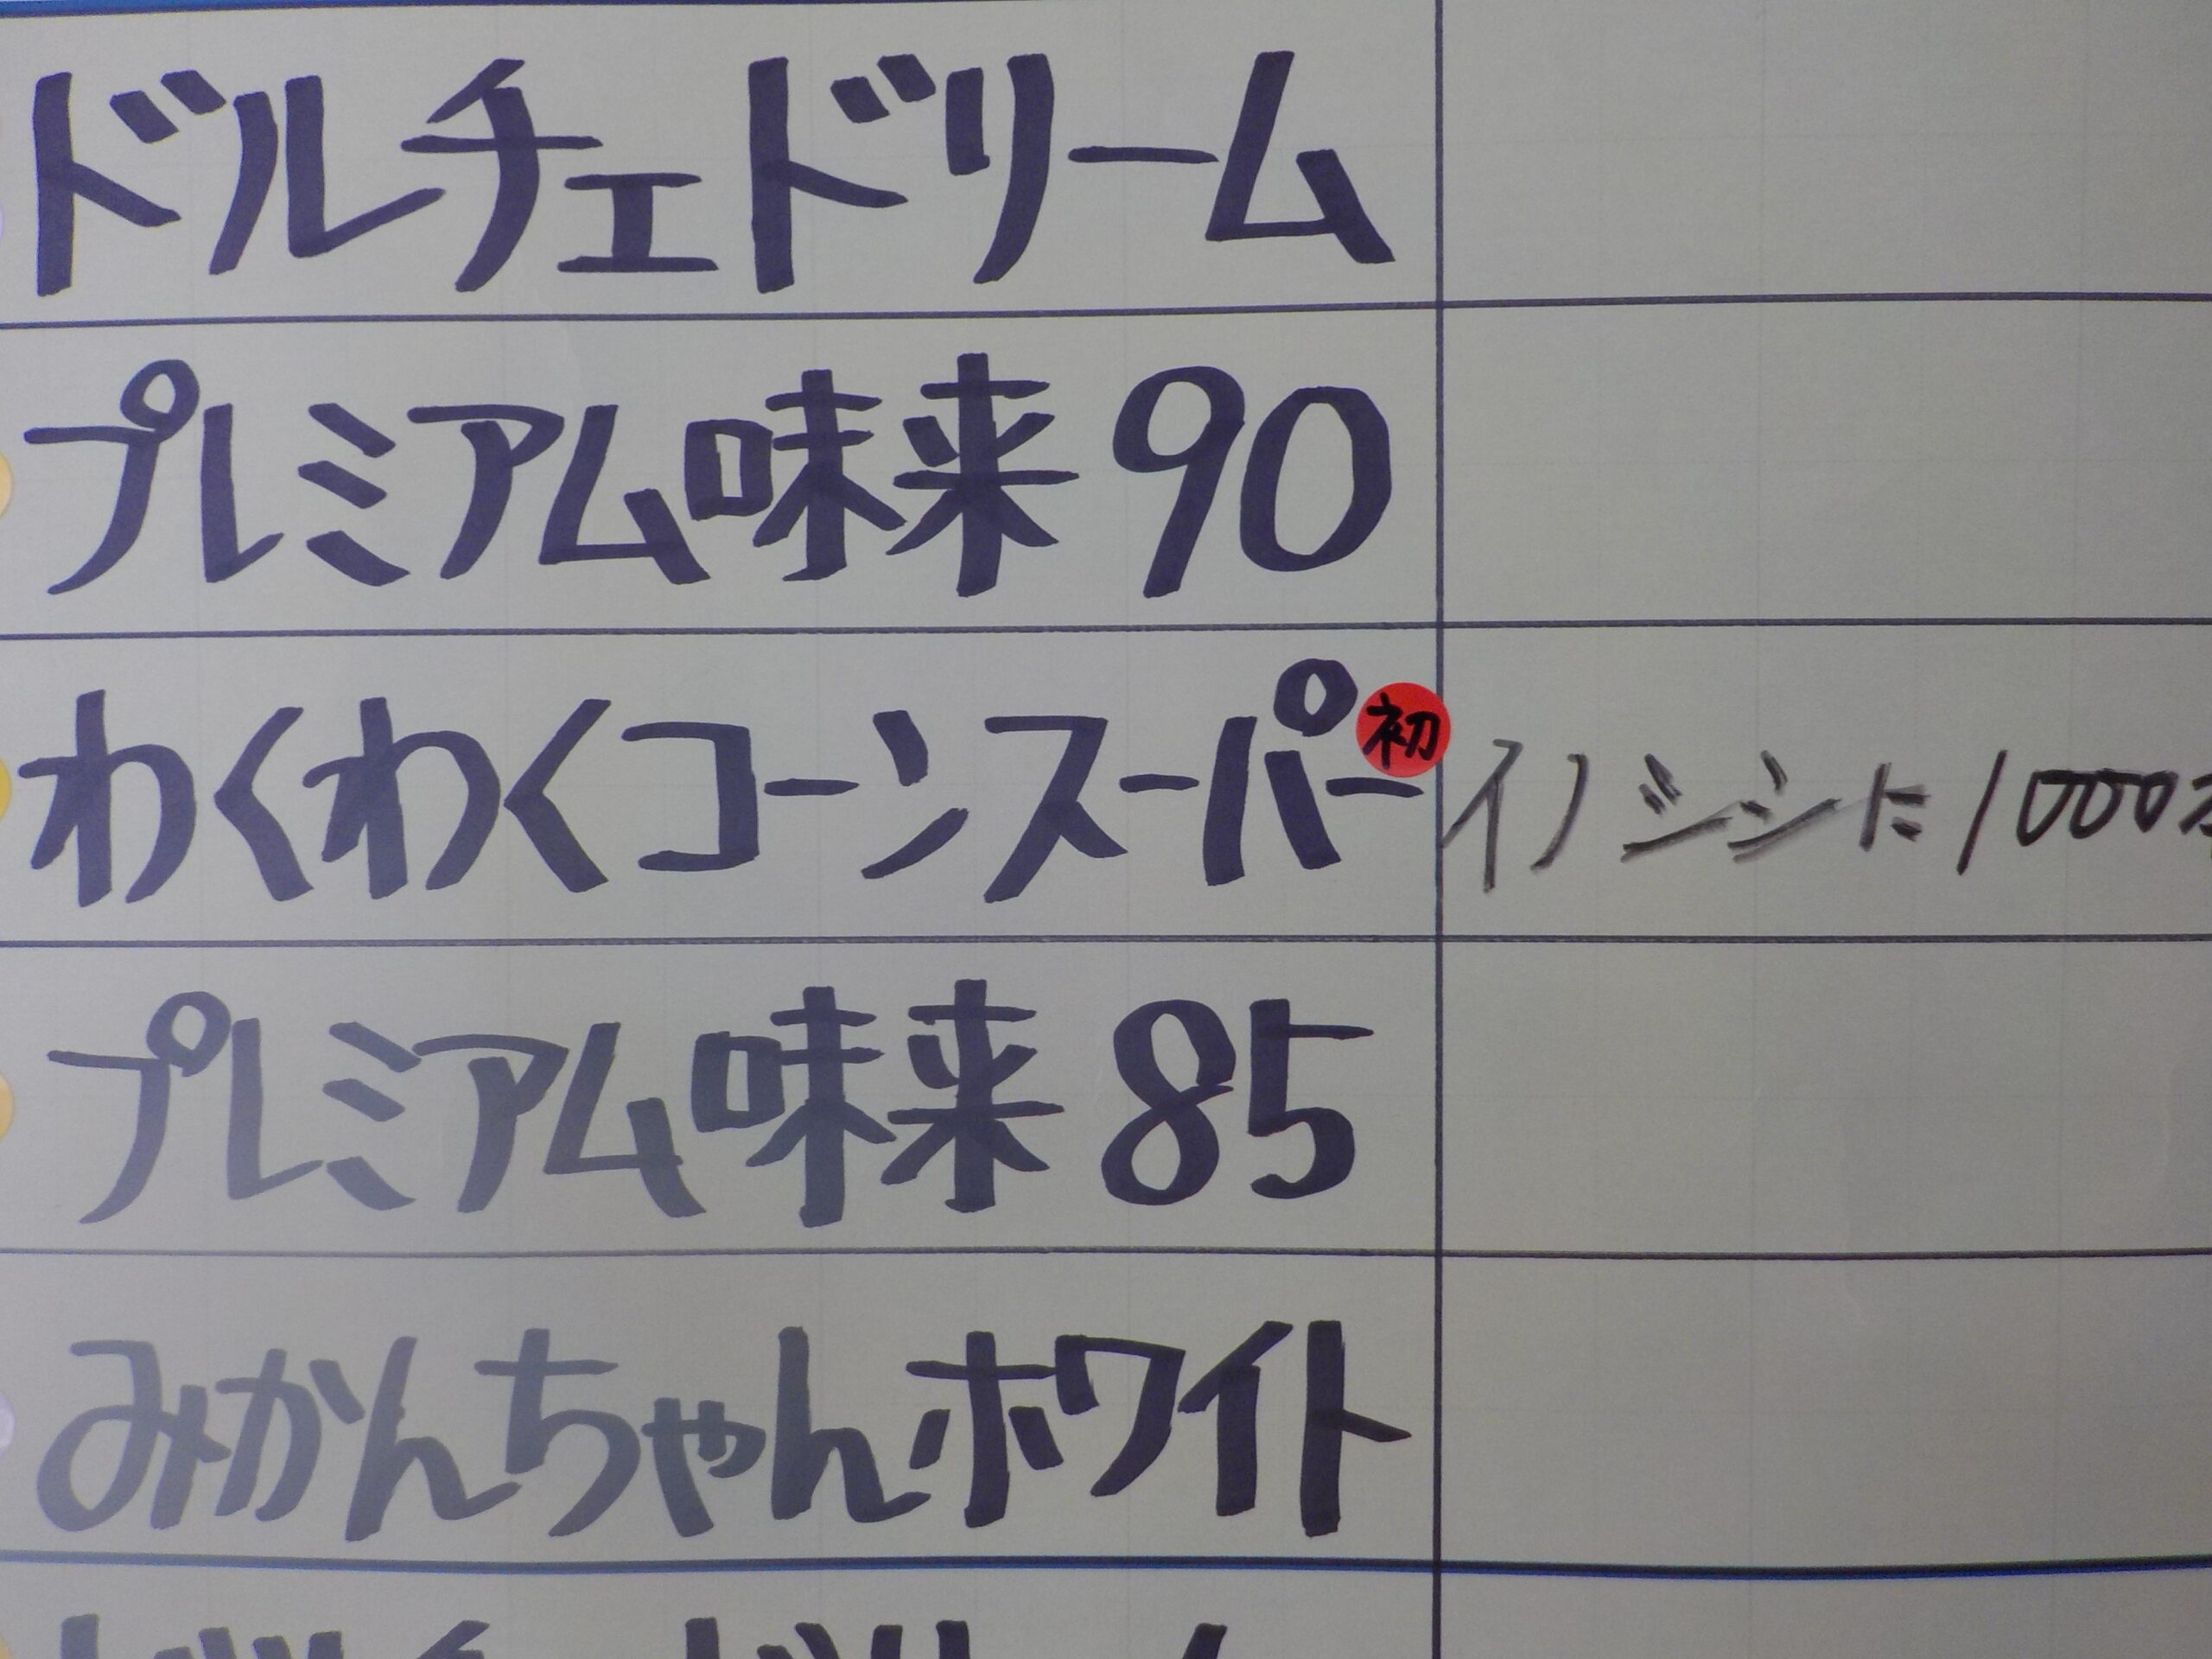 ドルチェドリーム
プレミアム味来90
わくわくコーンスーパー 初 イノシシに1000
プレミアム味来85
みかんちゃんホワイト